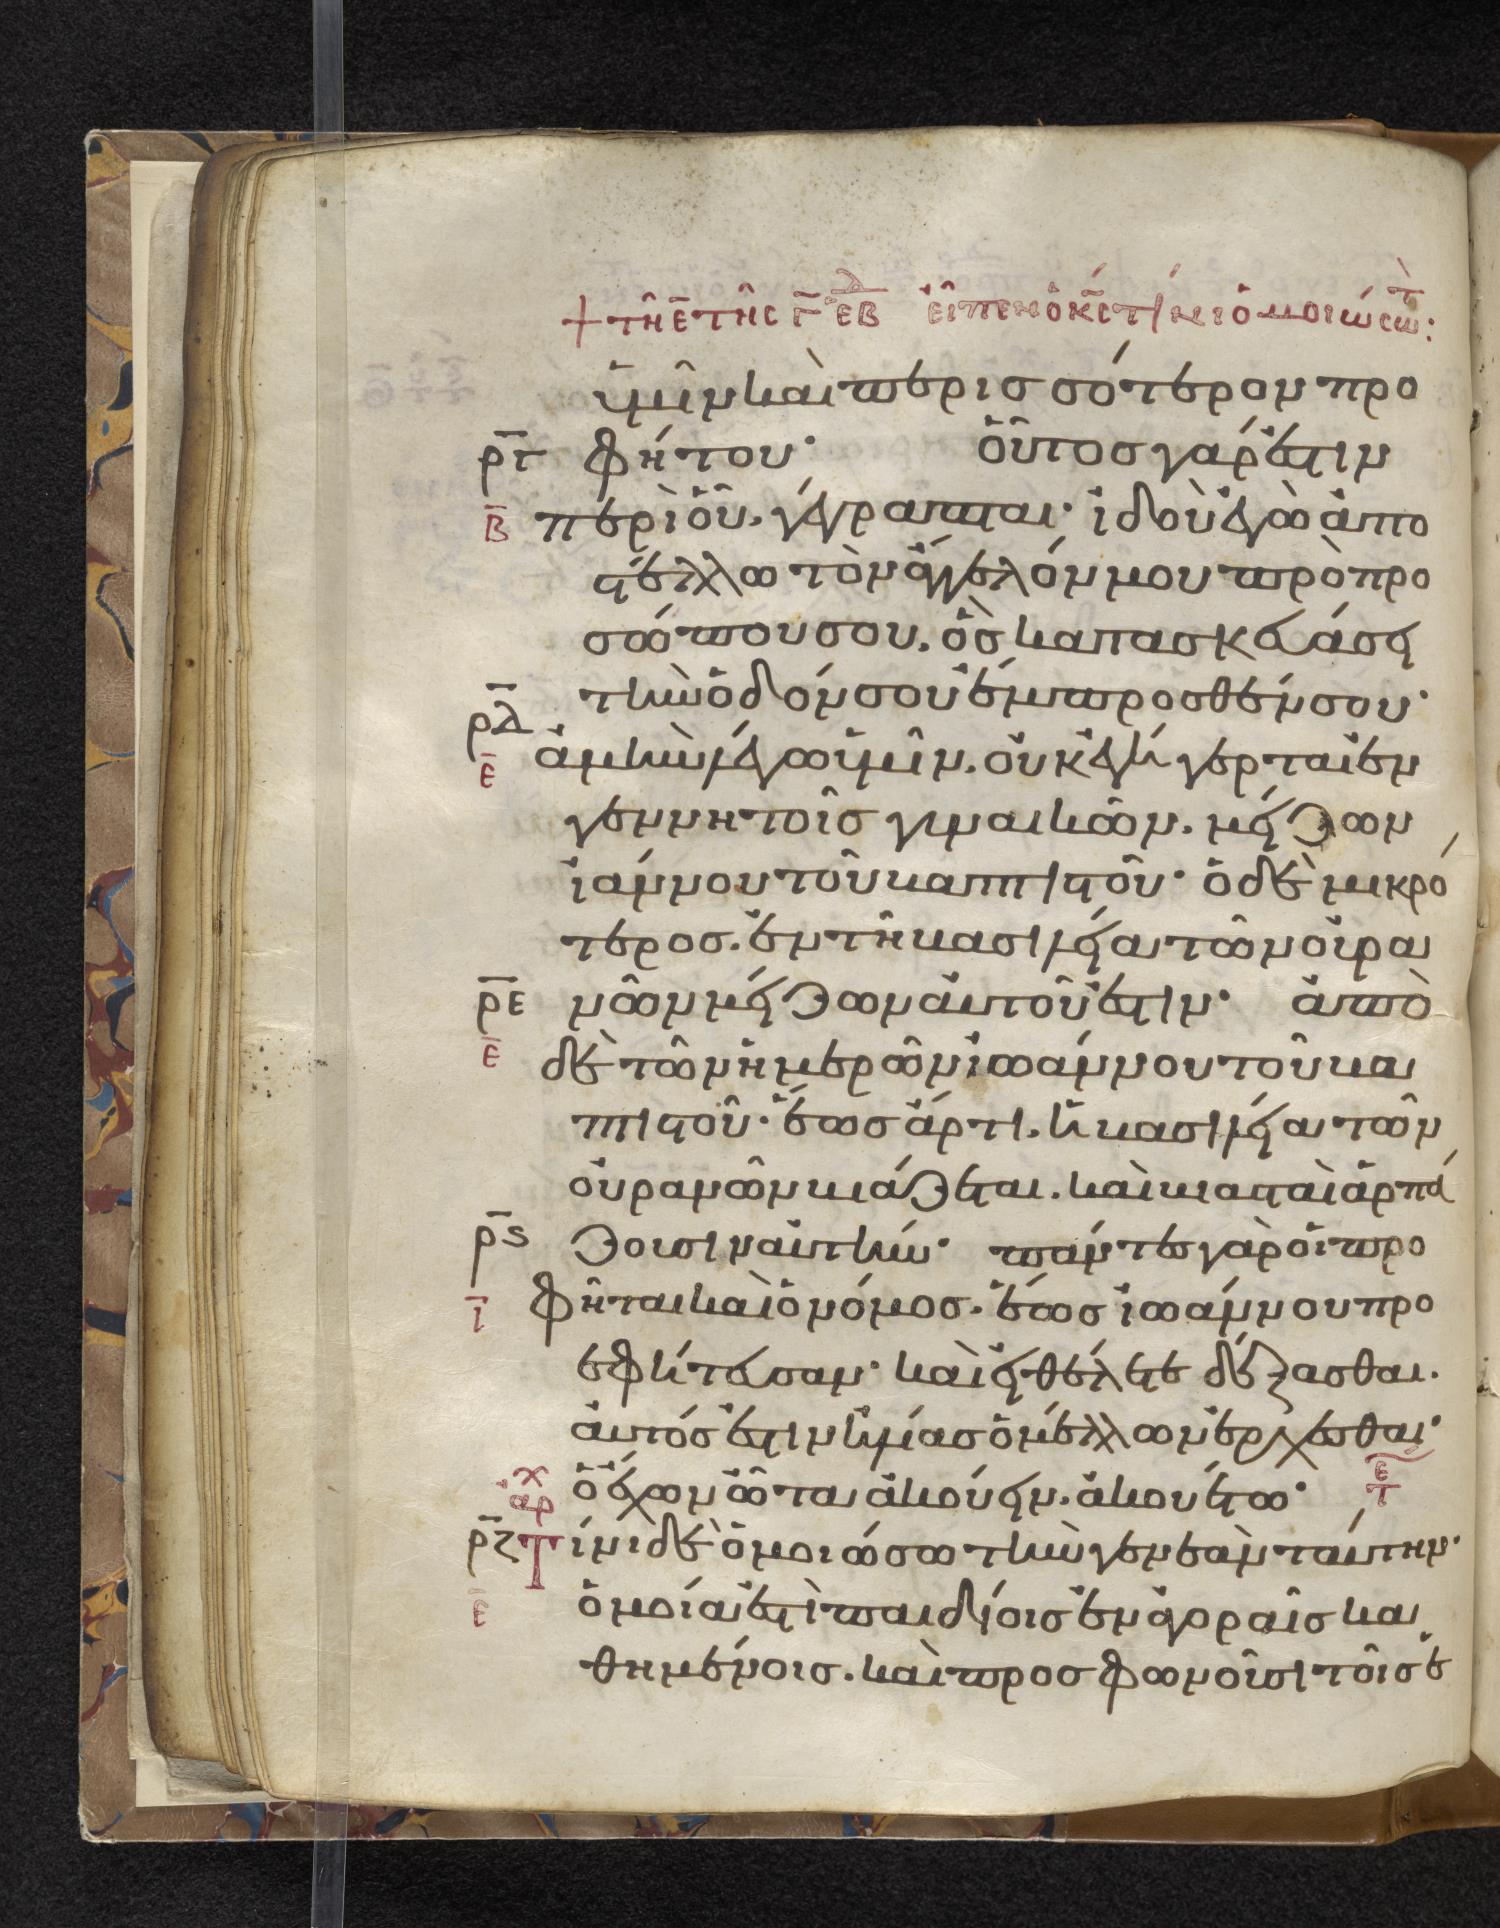 + τῆ ε̄ τῆς γ̄ ἑβδ εἶπεν ὁ κ̅ς̅ τίνι ὁμοιώσω τ:
ὑμῖν καὶ περισσότερον προ
ρ̅γ̅ φήτου· οὗτος γάρ ἐστιν
β̅ περὶ οὗ. γέγραπται· ἰδοὺ ἐγὼ ἀπο
στέλλω τὸν ἄγγελόν μου πρὸ προ
σώπου σου. ὃς κατασκευάσει
τὴν ὁδόν σου ἔμπροσθέν σου·
ρ̅δ̅ ἀμὴν λέγω ὑμῖν. οὐκ ἐγήγερται ἐν
ε̅
γεννητοῖς γυναικῶν. μείζων
ἰωάννου τοῦ βαπτιστοῦ· ὁ δὲ μικρό
τερος. ἐν τῇ βασιλείᾳ τῶν οὐρα
ρ̅ε̅ νῶν μείζων αὐτοῦ ἐστιν· ἀπὸ
ε̅ δὲ τῶν ἡμερῶν ἰωάννου τοῦ βα
πτιστοῦ· ἕως ἄρτι. ἡ βασιλεία τῶν
οὐρανῶν βιάζεται. καὶ βιασταὶ ἁρπά
ρ̅ς̅ ζουσιν αὐτήν· πάντες γὰρ οἱ προ
ι̅ φῆται καὶ ὁ νόμος. ἕως ἰωάννου προ
εφήτευσαν· καὶ εἰ θέλετε δέξασθαι.
αὐτός ἐστιν ἠλίας ὁ μέλλων ἔρχεσθαι·
ὁ ἔχων ὦτα ἀκούειν. ἀκουέτω· τε
αρχ
ρ̅ζ̅ Τίνι δὲ ὁμοιώσω τὴν γενεὰν ταύτην·
ε̅ ὁμοία ἐστὶ παιδίοις ἐν ἀγοραῖς κα
θημένοις. καὶ προσφωνοῦσι τοῖς ἑ